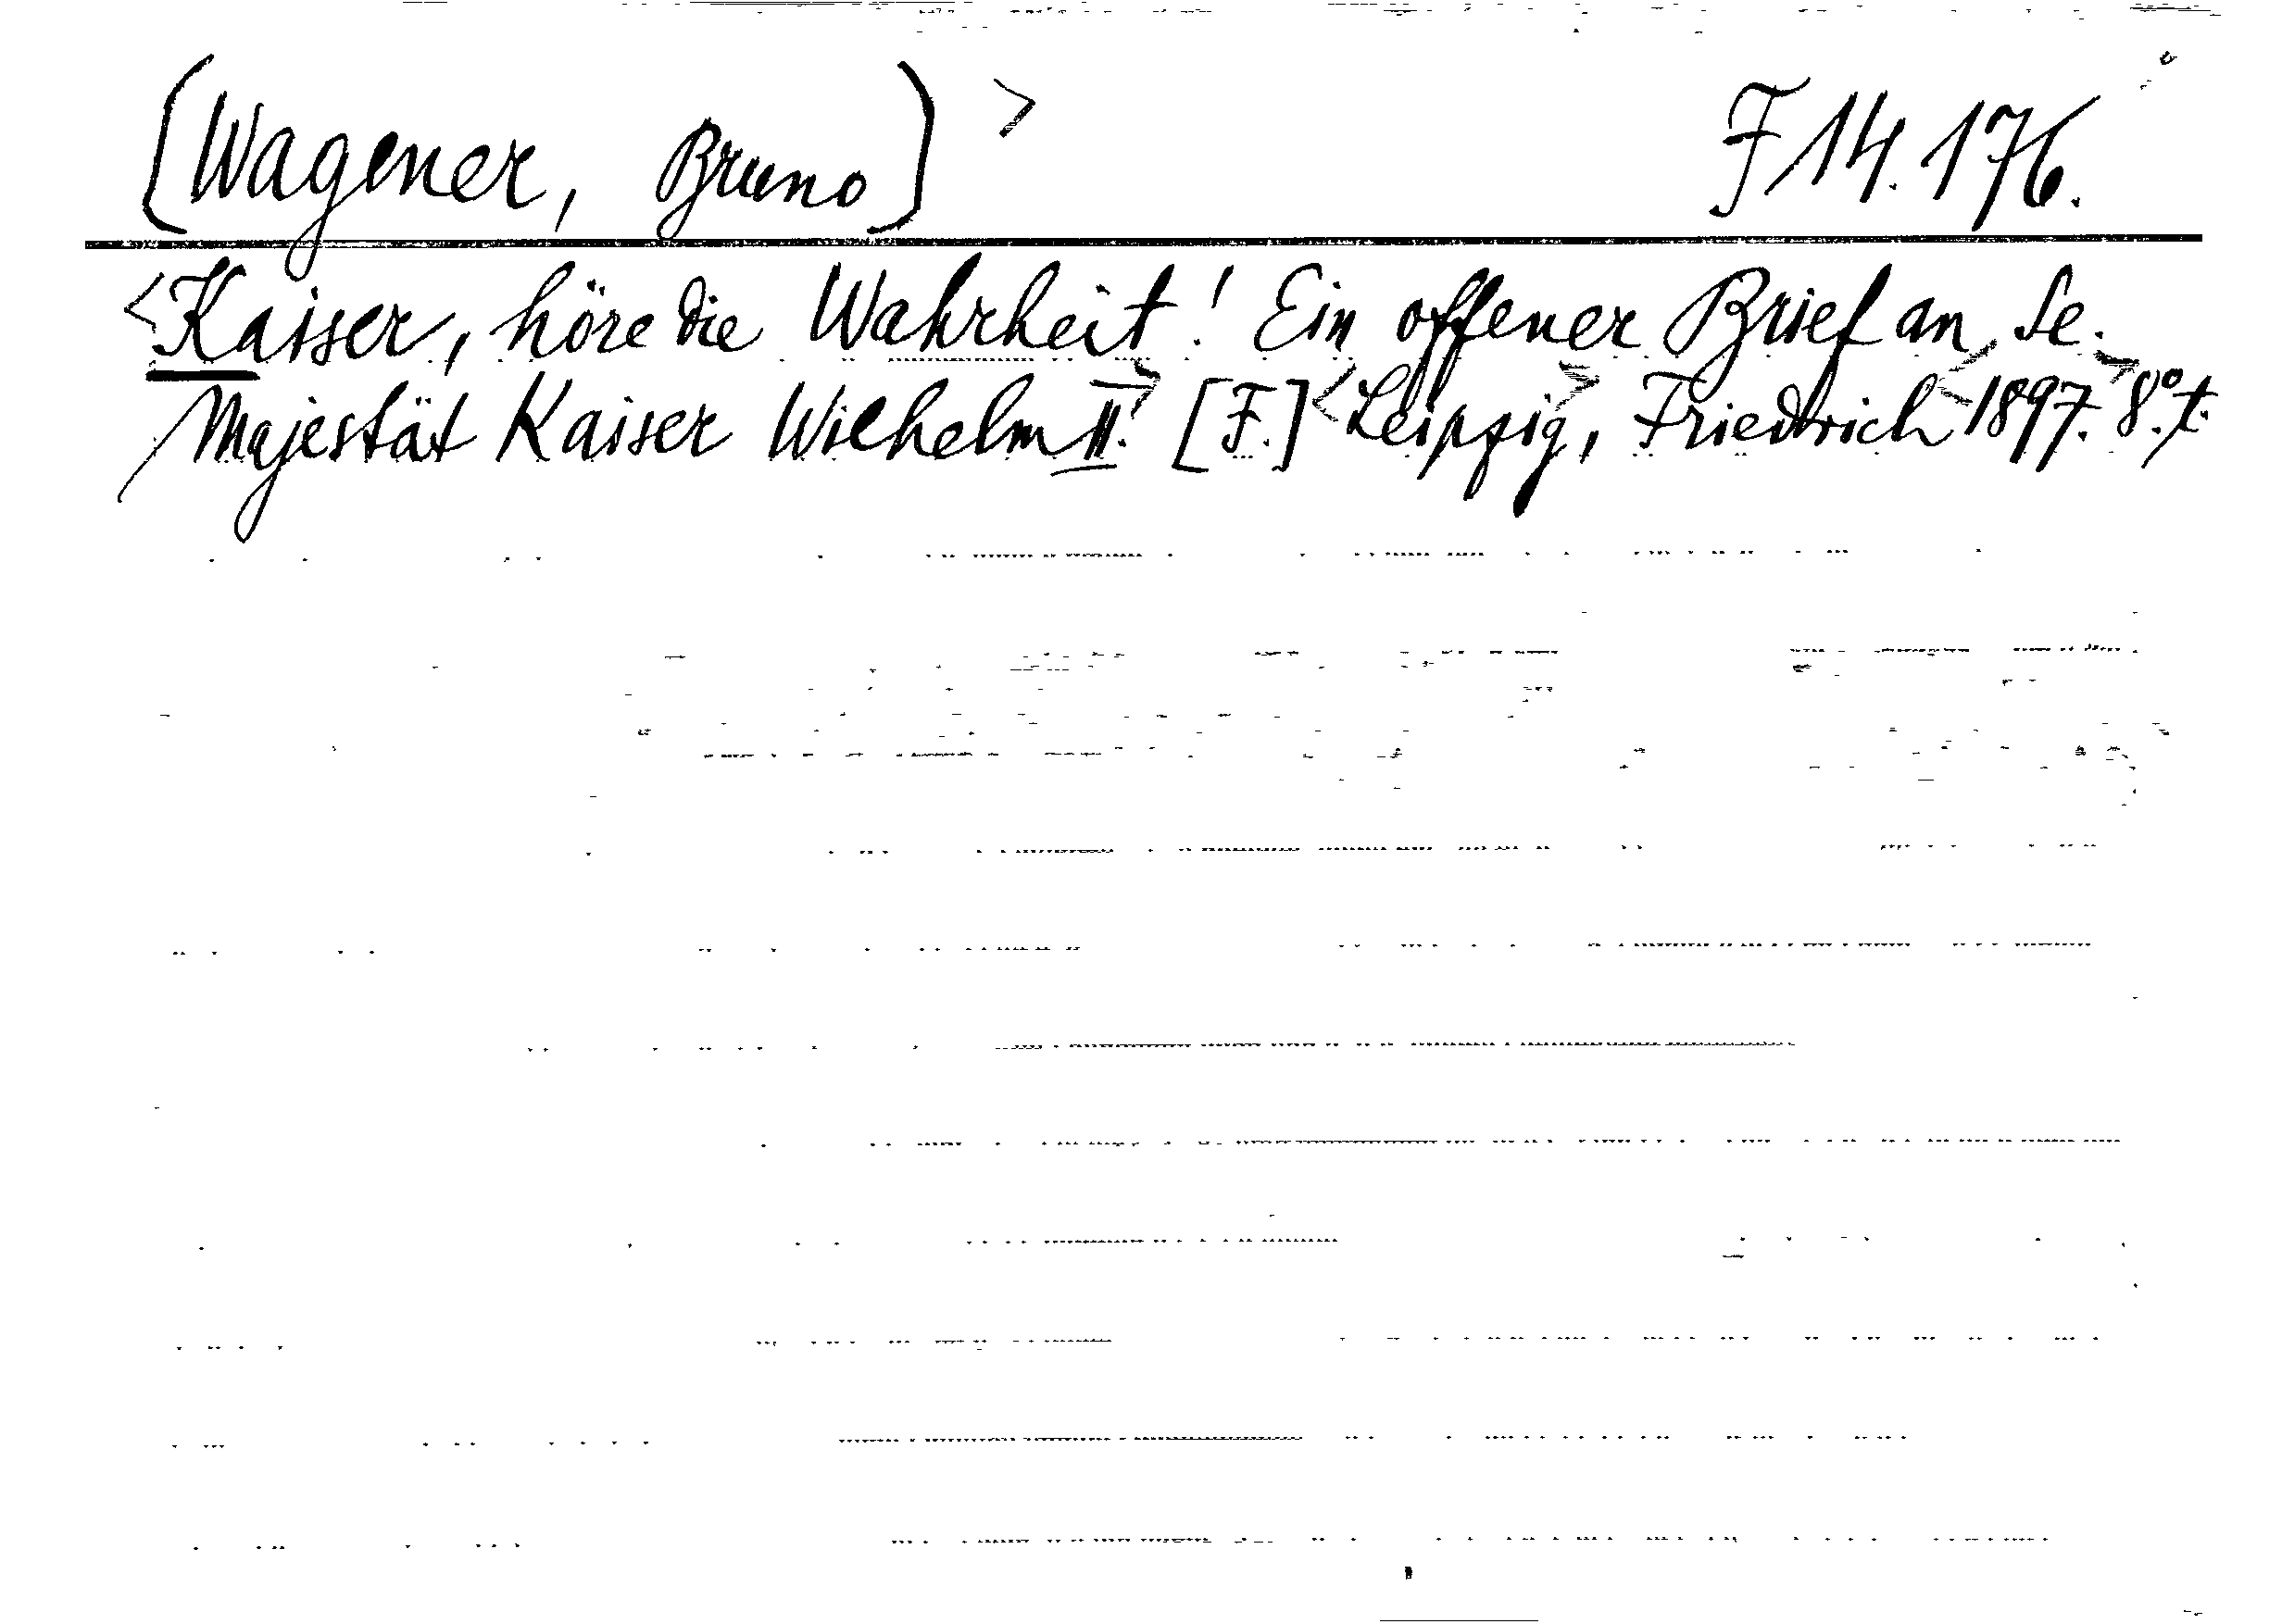 (Wagener, Bruno) > F 14.176.
<Kaiser, höre die Wahrheit! Ein offener Brief an Se.
Majestät Kaiser Wilhelm II.> [F.] <Leipzig>, Friedrich> <1897.> 8°.t.